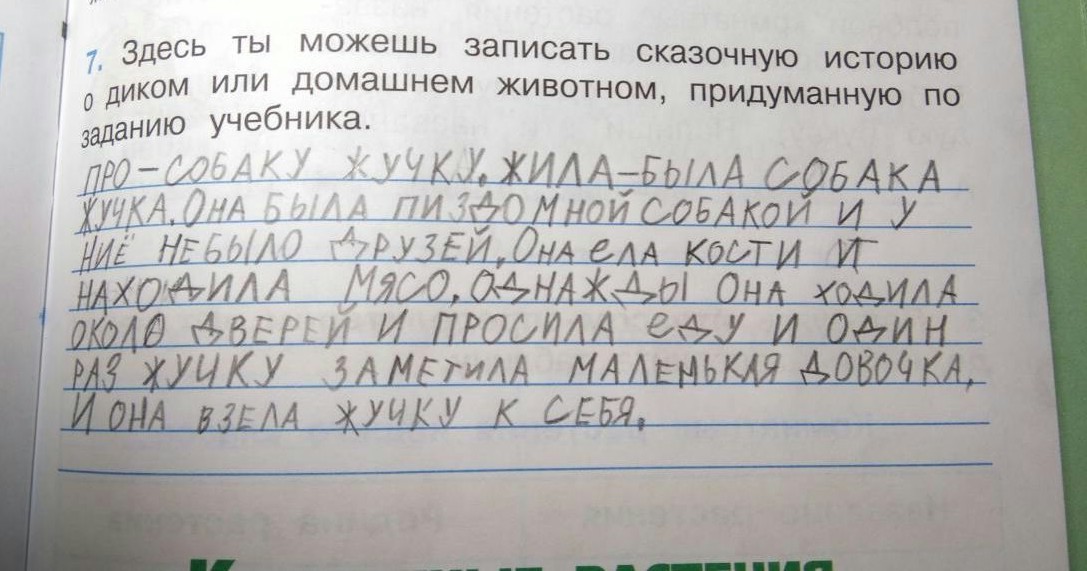 7. Здесь ты можешь записать сказочную историю
о диком или домашнем животном, придуманную по
заданию учебника.
ПРО-СОБАКУ ЖУЧКУ. ЖИЛА-БЫЛА СОБАКА
ЖУЧКА. ОНА БЫЛА ПИЗДОМНОЙ СОБАКОЙ И У
НИЁ НЕБЫЛО ДРУЗЕЙ, ОНА ЕЛА КОСТИ И
НАХОДИЛА МЯСО, ОДНАЖДЫ ОНА ХОДИЛА
ОКОЛО ДВЕРЕЙ И ПРОСИЛА ЕДУ И ОДИН
РАЗ ЖУЧКУ ЗАМЕТИЛА МАЛЕНЬКАЯ ДОВОЧКА,
И ОНА ВЗЕЛА ЖУЧКУ К СЕБЯ.
РАСТЕНИЯ